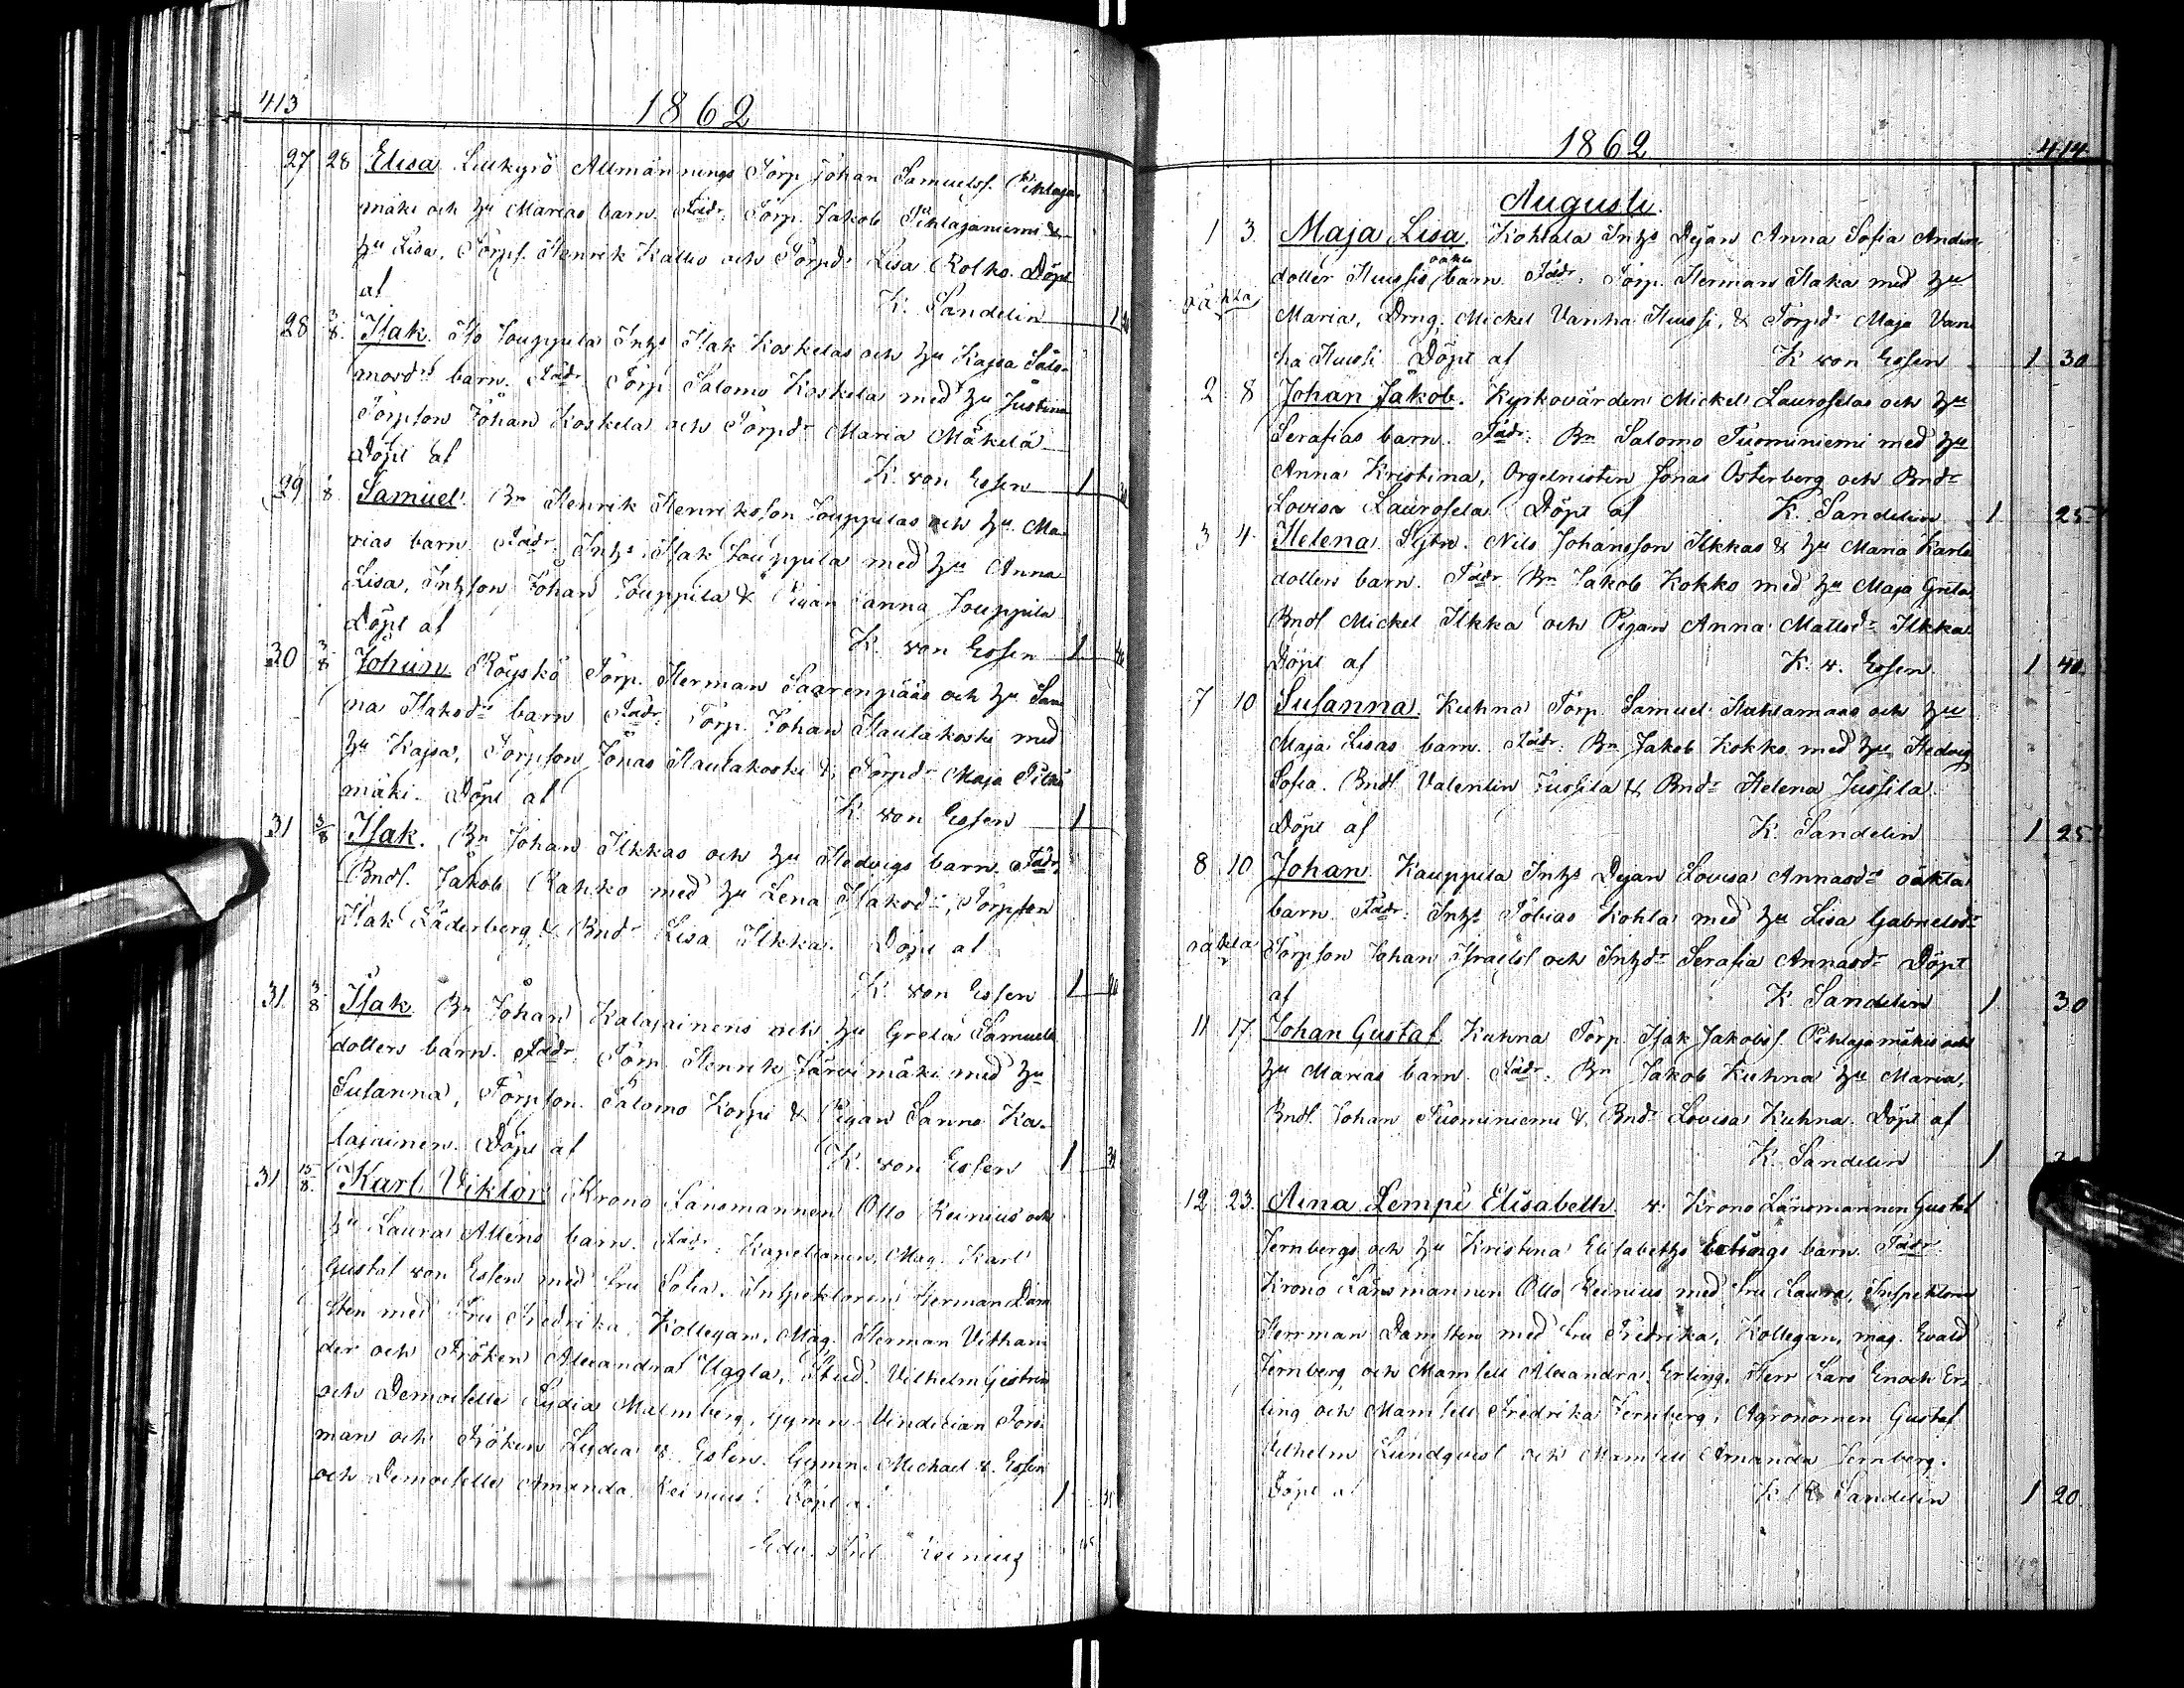 413
1862
27 28 Elisa Allmännings Torp. Johan Samuelss. Pihlaja-
mäki och hu Marias barn. Fadr: Torp. Jakob Pihlajaniemi &
hu Lisa, Torps. Henrik Kallio och Torpdr Lisa Rotko. Döpt
af K. Sandelin 1
28 3/8 Isak. Iso Jouppila Inhs Isak Koskelas och hu Kajsa Salo-
monsdrs barn. Fadr: Torp. Salomo Koskela med hu Justina
Torpson Johan Koskela och Torpdr Maria Mäkelä
Döpt af K. von Essen 1
29 8 Samuel. Bn Henrik Henriksson Jouppilas och hu Ma-
rias barn. Fadr: Inhs Isak Jouppila med hu Anna
Lisa, Inhson Johan Jouppila & Pigan Sanna Jouppila
Döpt af K. von Essen 1
30 3/8 Johan Röyskö Torp. Herman Saarenpääs och hu San-
na Isaksdrs barn Fadr: Torp. Johan Hautakoski med
hu Kajsa, Torpson Jonas Hautakoski & Torpdr Maja
mäki. Döpt af K. von Essen 1
31 3/8 Isak. Bn Johan Ilkkas och hu Hedvigs barn. Fadr:
Bnds. Jakob Rahko med hu Lena Isaksdr, Torpson
Isak Säderberg & Bndr Lisa Ilkka. Döpt af
K. von Essen 1
31 3/8 Isak. Bn Johan Kalajainens och hu Greta Samuels
dotters barn. Fadr: Torp. Henrik Järvimäki med hu
Susanna, Torpson. Salomo Korpi & Pigan Sanna Ka-
lajainen. Döpt af K. von Essen 1
31 15/8 Karl Viktor Krono Länsmannen Otto Reinius och
hu Laura barn. Fadr: Kapellanen, Mag. Karl
Gustaf von Essen med fru Sofia. Inspektoren Herman Dam
sten med Fru Fredrika. Kollegan, Mag. Herman
der och Fröken Alexandra Uggla, Stud. Vilhelm
och Demoiselle Lydia Malmberg, Gymn. Vindician Fors-
man och Fröken Lydia v. Essen. Gymn. Michael v. Essen
och Demoiselle Amanda Reinius. Döpt af 1
Reinius
1862 414
Augusti.
1 3 Maja Lisa. Kohtala Inhs Pigan Anna Sofia Anders
oäkta
dotter Huissis barn. Fadr: Torp. Herman Haka med hu
oäkta Maria, Drng. Mickel Vanha Huissi, & Torpdr Maja Van
ha Huissi Döpt af K von Essen 1 30
2 8 Johan Jakob. Kyrkovärden Mickel Lauroselas och hu
Serafias barn. Fadr: Bn Salomo Tuominiemi med hu
Anna Kristina, Orgelnisten Jonas Österberg och Bndr
Lovisa Laurosela. Döpt af K. Sandelin 1 25
3 4 Helena. Nils Johansson Ilkkas & hu Maria Karls
dotters barn. Fadr Bn Jakob Kokko med hu Maja Greta,
Bnds Mickel Ilkka och Pigan Anna Mattsdr Ilkka
Döpt af K. v. Essen. 1 40
7 10 Susanna. Kuhna Torp. Samuel och hu
Maja Lisas barn. Fadr: Bn Jakob Kokko med hu Hedvig
Sofia. Bnds Valentin Jussila & Bndr Helena Jussila
Döpt af K. Sandelin 1 25
8 10 Johan. Kauppila Inhs Pigan Lovisa Annasdrs oäkta
barn. Fadr: Inhs Tobias Kohla med hu Lisa Gabrielsdr
oäkta Torpson Johan Israelss och Inhdr Serafia Annasdr Döpt
af K Sandelin 1 30
11 17 Johan Gustaf. Kuhna Torp. Isak Jakobss. Pihlajamäkis och
hu Marias barn. Fadr: Bn Jakob Kuhna hu Maria,
Bnds. Johan Tuominiemi & Bndr Lovisa Kuhna. Döpt af
K. Sandelin 1
12 23 Aina Lempi Elisabeth. v. Krono Länsmannen Gustaf
Jernbergs och hu Kristina Elisabeths Erlings barn. Fadr.
Krono Länsmannen Otto Reinius med fru Laura, Inspektoren
Herrman Damsten med fru Fredrika, Kollegan, mag. Evald
Jernberg och Mamsell Alexandra Erling, Herr Lars Enoch Er-
ling och Mamsell Fredrika Jernberg, Agronomen Gustaf
Vilhelm Lundqvist och Mamsell Amanda Jernberg.
Döpt af K. R. Sandelin 1 20